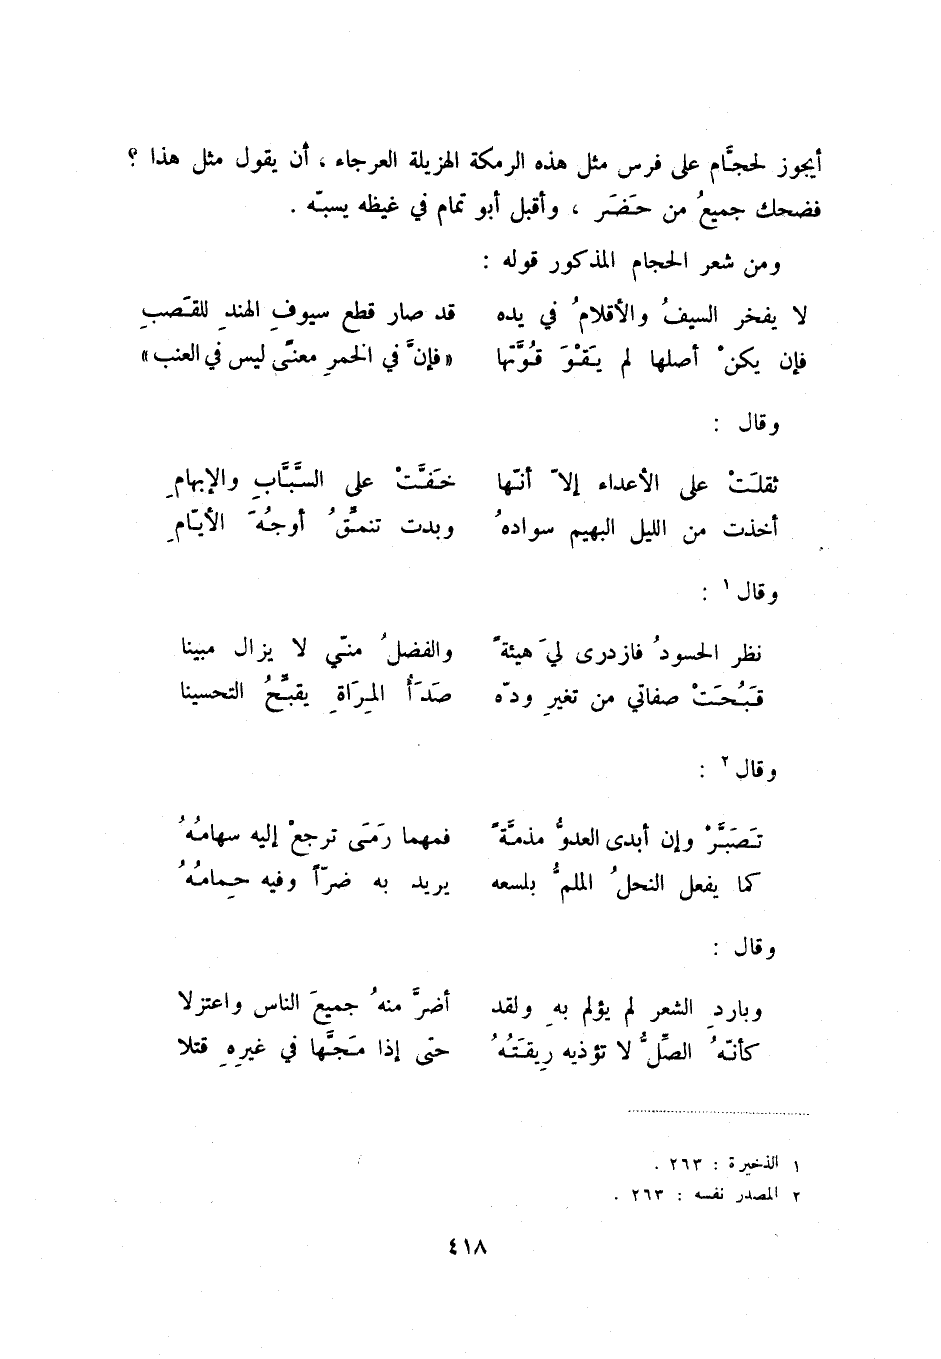 أيجوز لحجَّام على فرس مثل هذه الرمكة الهزيلة العرجاء ، أن يقول مثل هذا ؟
فضحك جميعُ من حَضَر ، وأقبل أبو تمام في غيظه يسبّه .
ومن شعر الحجام المذكور قوله :
لا يفخر السيفُ والأقلامُ في يده قد صار قطع سيوفِ الهندِ للقَصبِ
فإن يكنْ أصلها لم يَقْوَ قُوَّتها «فإنَّ في الخمرِ معنىً ليس في العنب»
وقال :
ثقلَتْ على الأعداء إلاّ أنّها خَفَّتْ على السَّبَّابِ والإبهامِ
أخذت من الليل البهيم سوادهُ وبدت تنمقُ أوجُهَ الأيّامِ
وقال ١ :
نظر الحسودُ فازدرى ليَ هيئةً والفضلُ منّي لا يزال مبينا
قَبُحَتْ صفاتي من تغيرِ ودّه صَدَأُ المِرَاةِ يقبِّحُ التحسينا
وقال ٢ :
تَصَبَّرْ وإن أبدى العدوُّ مذمَّةً فمهما رَمَى ترجعْ إليه سهامُهُ
كما يفعل النحلُ الملمُّ بلسعه يريد به ضرّاً وفيه حِمامُهُ
وقال :
وباردِ الشعر لم يؤلم بهِ ولقد أضرَّ منهُ جميعَ الناس واعتزلا
كأنّهُ الصِّلُّ لا تؤذيه رِيقَتُهُ حتى إذا مَجَّها في غيرِهِ قتلا
١ الذخيرة : ٢٦٣ .
٢ المصدر نفسه : ٢٦٣ .
٤١٨